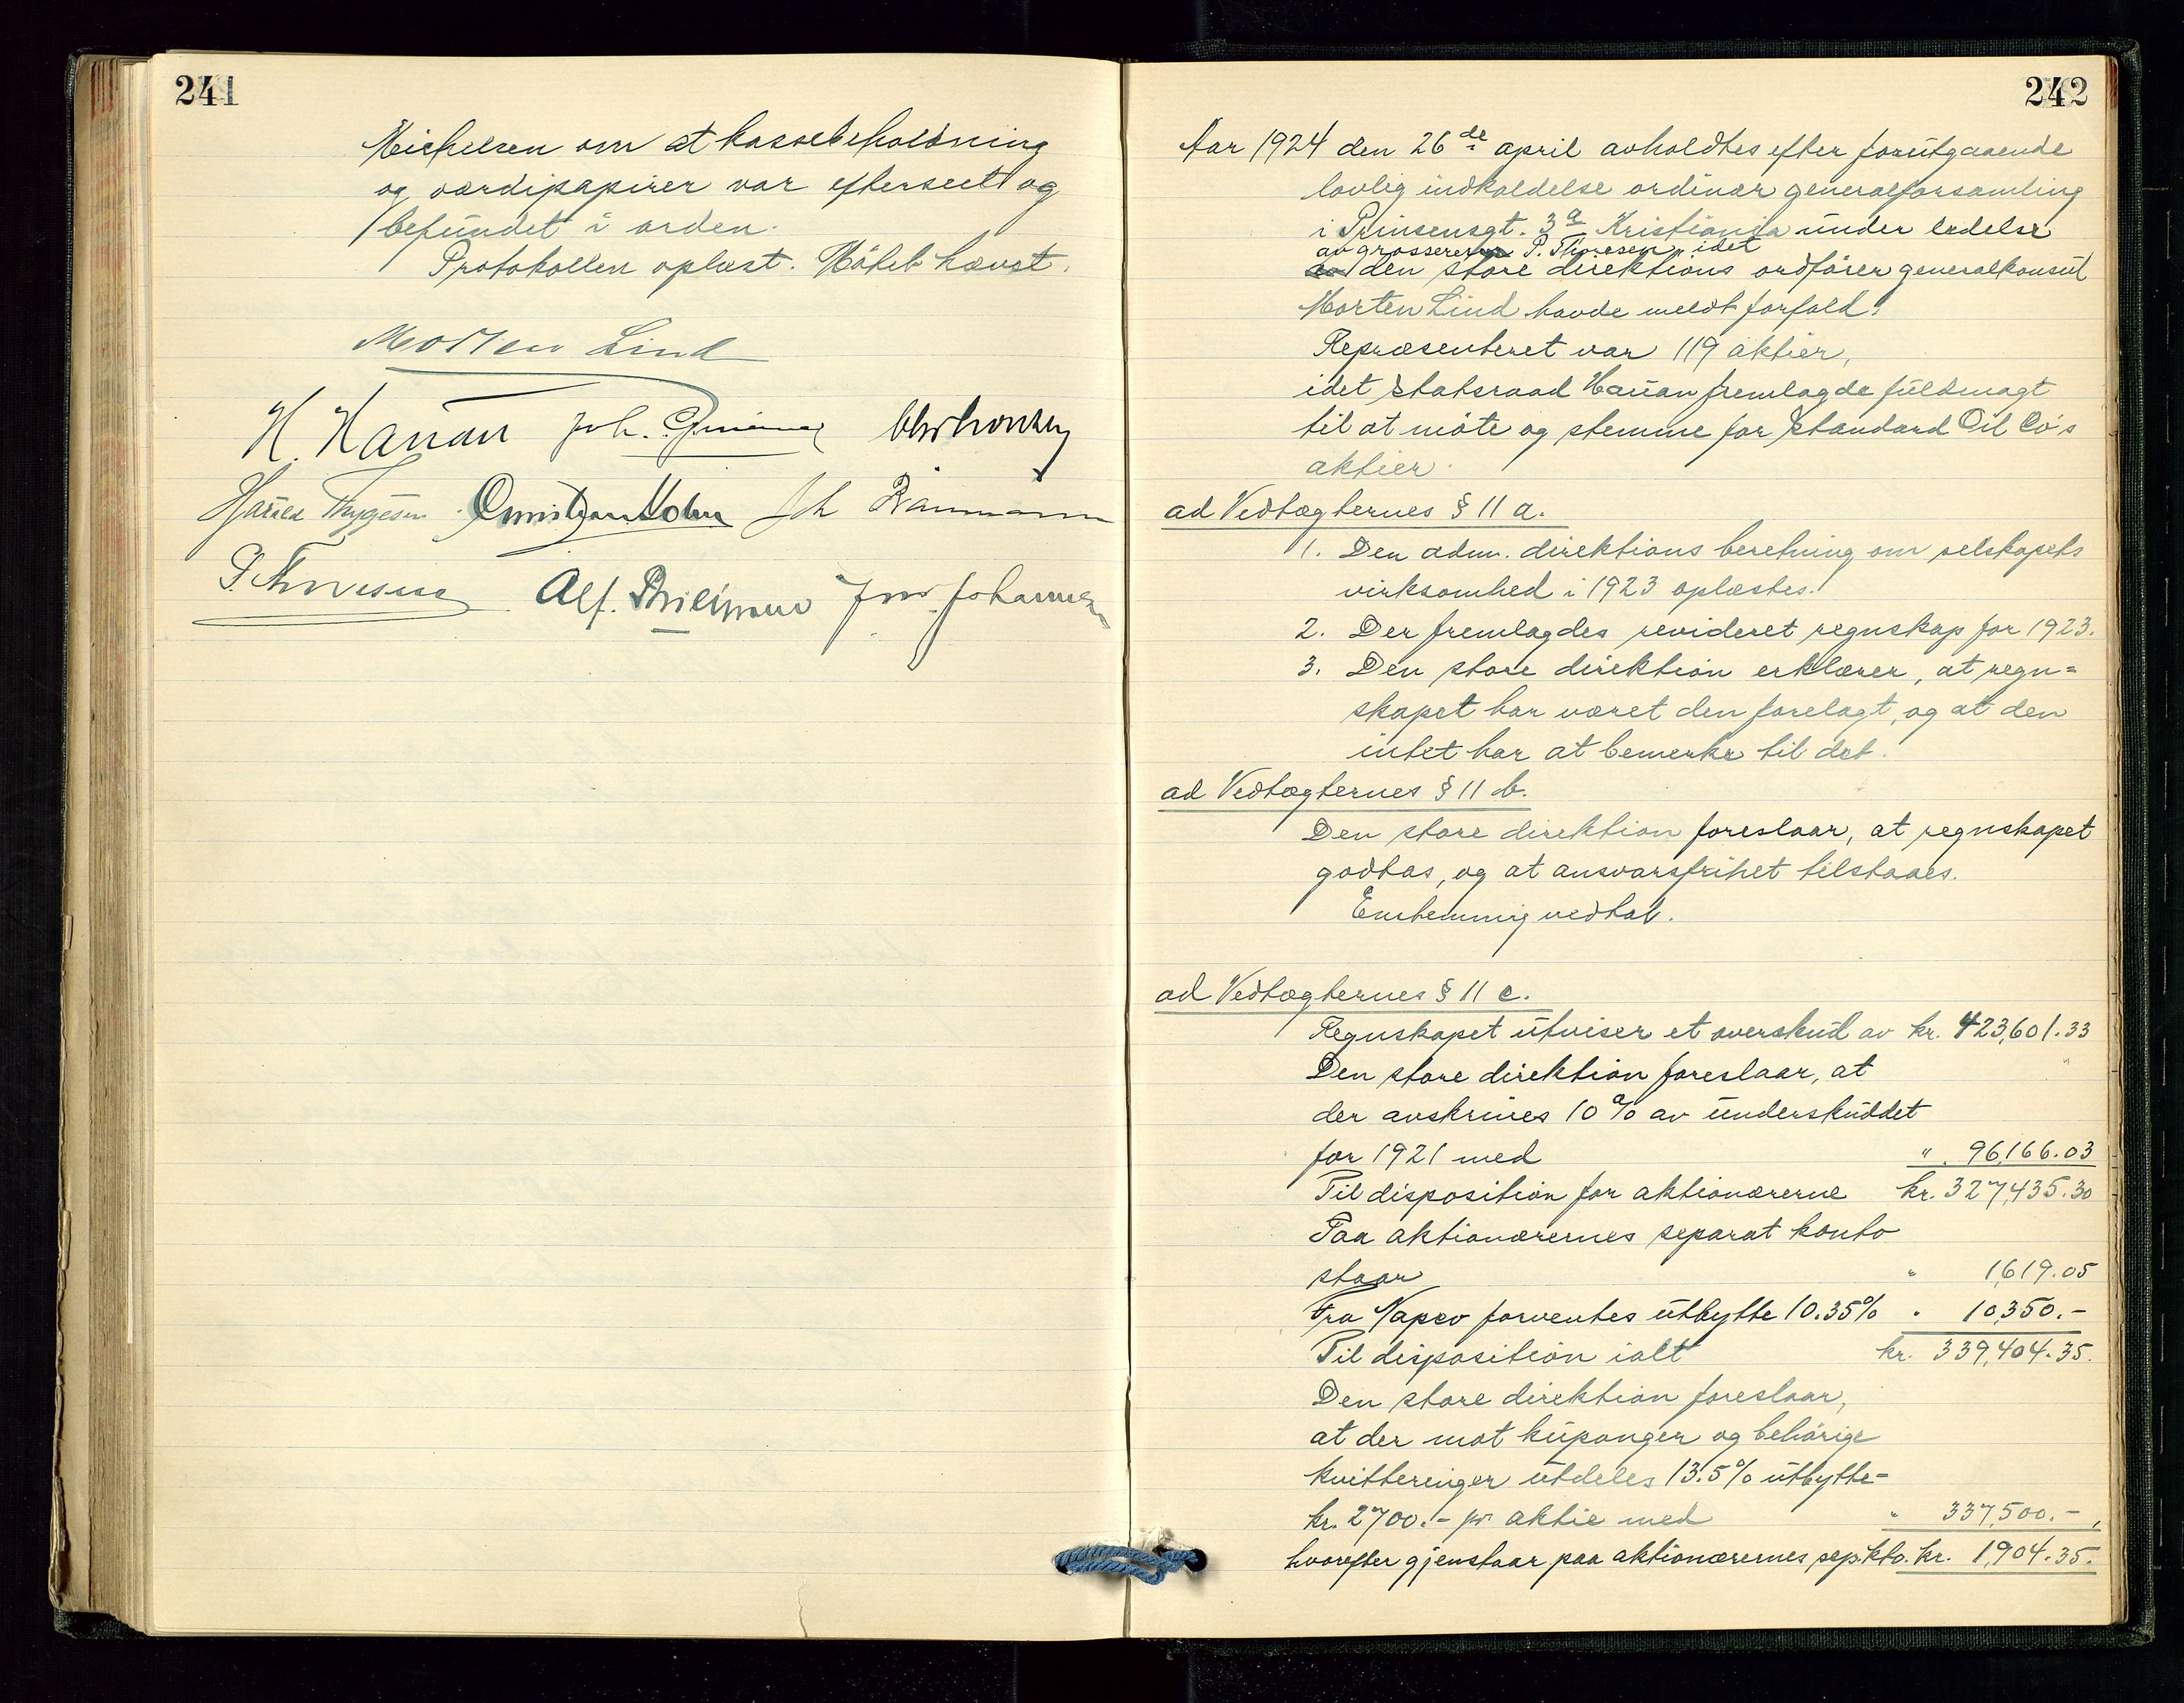 241
Michelsen om at kassebeholdning
og værdipapirer var efterseet og
befundet i orden.
Protokollen oplæst. Mötet hævet.
Morten Lind
H. Hauan Joh.
Harald Thygesen Joh Braumann
P. Thoresen Alf. Jns. Johannes
242
Aar 1924 den 26de april avholdtes efter forutgaaende
lovlig indkaldelse ordinær generalforsamling
i Prinsensgt. 3a Kristiania under ledelse
av grosserer P. Thoresen, idet
den store direktions ordfører generalkonsul
Morten Lind havde meldt forfald.
Repræsenteret var 119 aktier,
idet statsraad Hauan fremlagde fuldmagt
til at møte og stemme for Standard Oil Co's
aktier.
ad Vedtægternes § 11 a.
1. Den adm. direktions beretning om selskapets
virksomhed i 1923 oplæstes.
2. Der fremlagdes revideret regnskap for 1923.
3. Den store direktion erklærer, at regn=
skapet har været den forelagt, og at den
intet har at bemerke til det.
ad Vedtægternes § 11 b.
Den store direktion foreslaar, at regnskapet
godtas, og at ansvarsfrihet tilstaaes.
Enstemmig vedtat.
ad Vedtægternes § 11 c.
Regnskapet utviser et overskud av kr. 423,601.33
Den store direktion foreslaar, at
der avskrives 10% av underskuddet
for 1921 med " 96,166.03
Til disposition for aktionærerne kr. 327,435.30
Paa aktionærernes separat konto
staar " 1,619.05
Fra Vapco forventes utbytte 10.35% " 10,350.-
Til disposition ialt kr. 339,404.35.
Den store direktion foreslaar,
at der mot kuponger og behørige
kvitteringer utdeles 13.5% utbytte-
kr. 2700.- pr aktie med " 337,500.-,
hvorefter gjenstaar paa aktionærernes sep.kto. kr. 1,904.35.